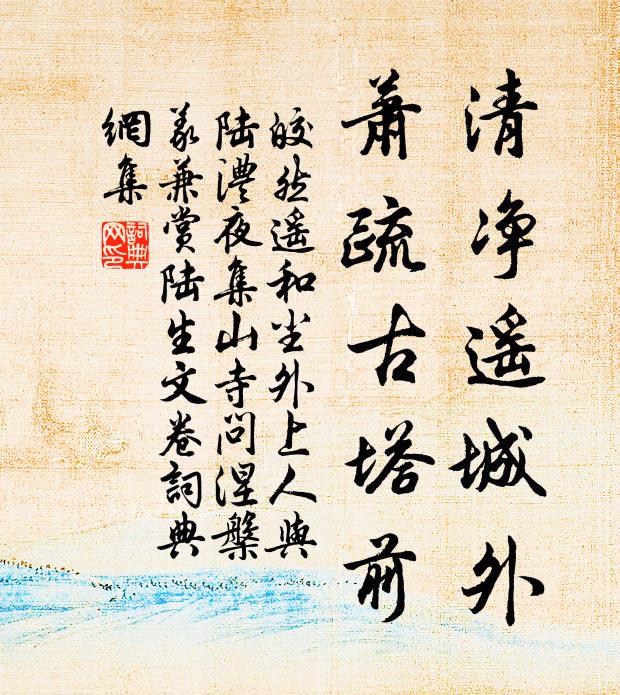 清净遥城外
萧疏古塔前
皎然遥和尘外上人與
陆澧夜集山寺問涅槃
义兼赏陆生文卷詞典
網集
詞典
网印